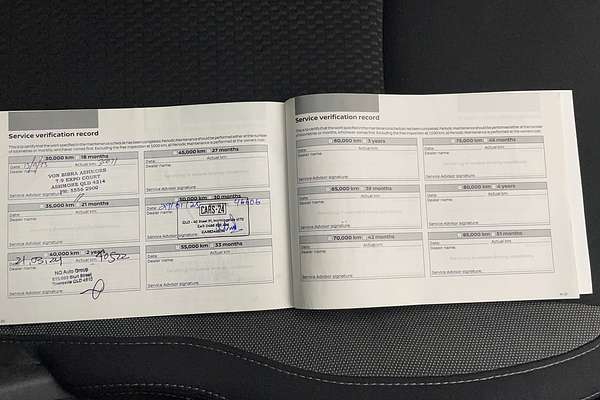 Service verification record
This is to certify that the work specified in the maintenance schedule has been completed. Periodic Maintenance should be performed either at the number
of kilometres or months, whichever comes first. Excluding the free inspection at 1,000 km, all Periodic Maintenance is at the owners cost.
30,000 km 18 months
Date: Actual km:
Dealer name:
VON BIBRA ASHMORE
ASHMORE QLD 4214
Service Advisor signature:
35,000 km 21 months
Date: Actual km:
Dealer name:
Service Advisor signature:
40,000 km 2 years
Date: 21.03.24 Actual km: 40522
Dealer name:
NQ Auto Group
Townsville QLD 4810
Service Advisor signature:
45,000 km 27 months
Date: Actual km:
Dealer name:
Service Advisor signature:
50,000 km 30 months
Date: Actual km: 46606
Dealer name:
CARS·24
Service Advisor signature:
55,000 km 33 months
Date: Actual km:
Dealer name:
Service Advisor signature:
Service verification record
This is to certify that the work specified in the maintenance schedule has been completed. Periodic Maintenance should be performed either at the number
of kilometres or months, whichever comes first. Excluding the free inspection at 1,000 km, all Periodic Maintenance is at the owners cost.
60,000 km 3 years
Date: Actual km:
Dealer name:
Service Advisor signature:
65,000 km 39 months
Date: Actual km:
Dealer name:
Service Advisor signature:
70,000 km 42 months
Date: Actual km:
Dealer name:
Service Advisor signature:
75,000 km 45 months
Date: Actual km:
Dealer name:
Service Advisor signature:
80,000 km 4 years
Date: Actual km:
Dealer name:
Service Advisor signature:
85,000 km 51 months
Date: Actual km:
Dealer name:
Service Advisor signature: